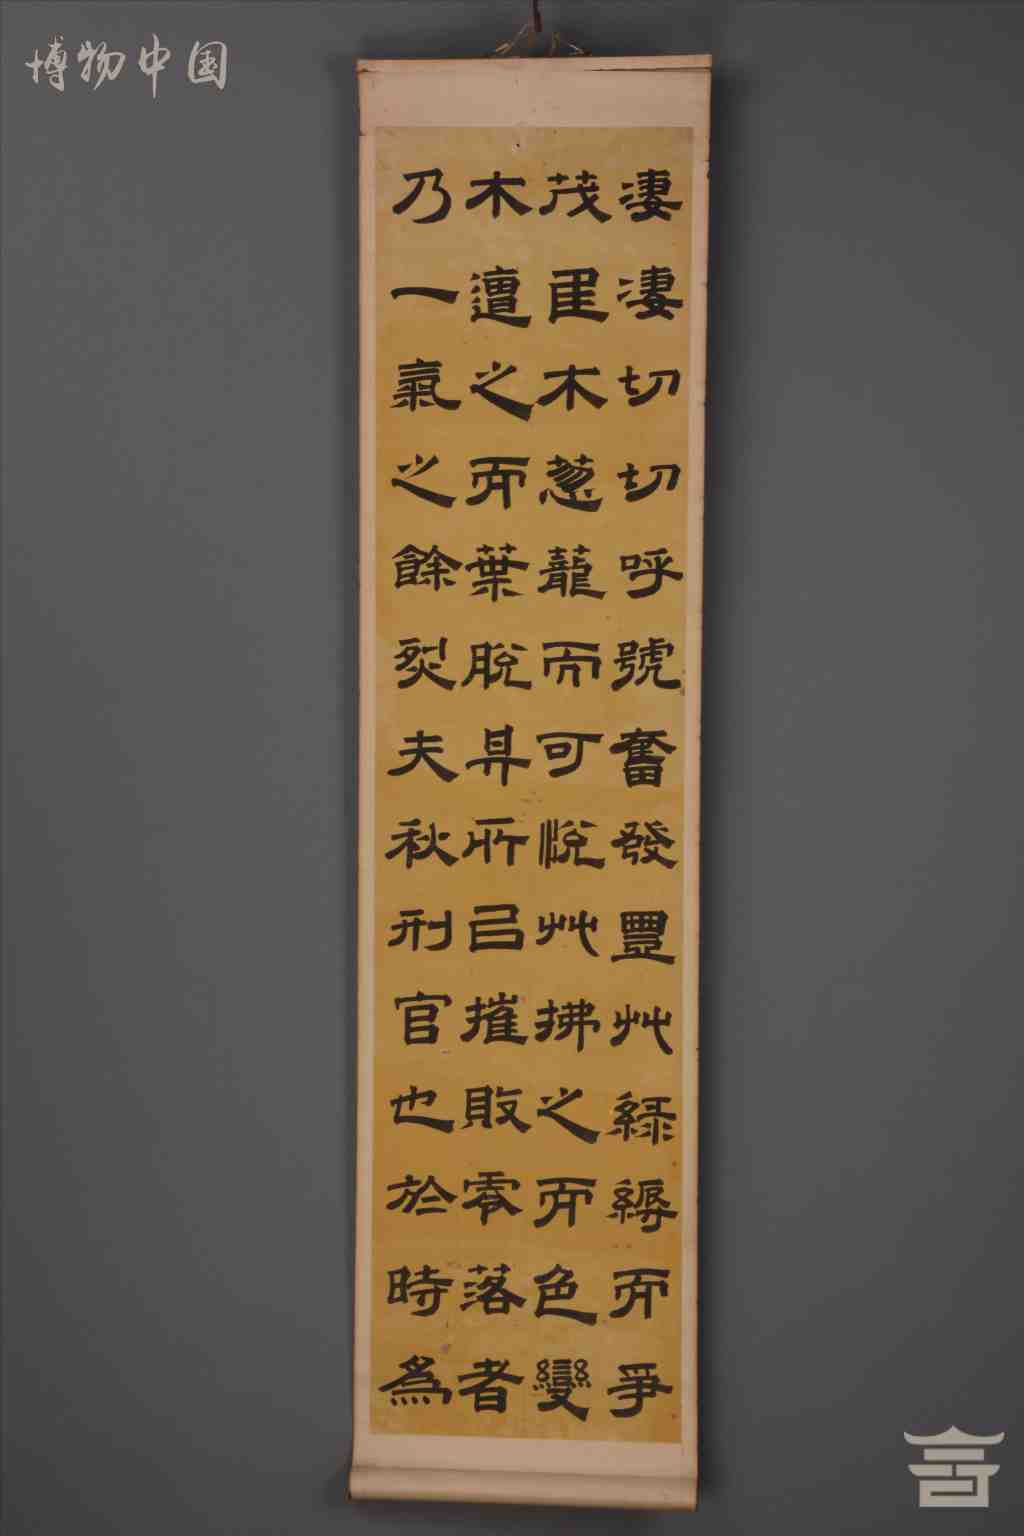 博物中国
凄凄切切呼號奮發豐艸緑縟而爭
茂佳木葱蘢而可悅艸拂之而色變
木遭之而葉脫其所㠯摧敗零落者
乃一氣之餘烈夫秋刑官也於時為